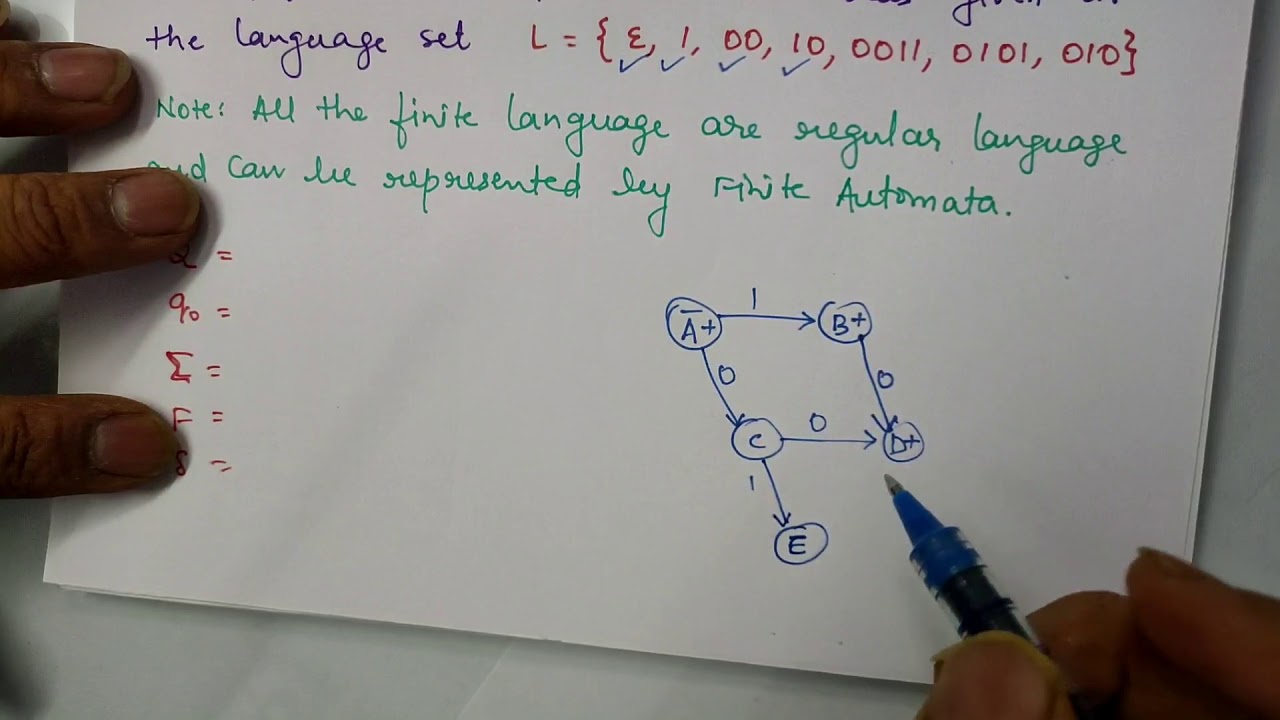 given
the language set L = {ε, 1, 00, 10, 0011, 0101, 010}
Note: All the finite language are regular language
and can be represented by Finite Automata.
Q =
q₀ =
Σ =
F =
δ =
1
A̅+
B+
0
0
C
0
D+
1
E